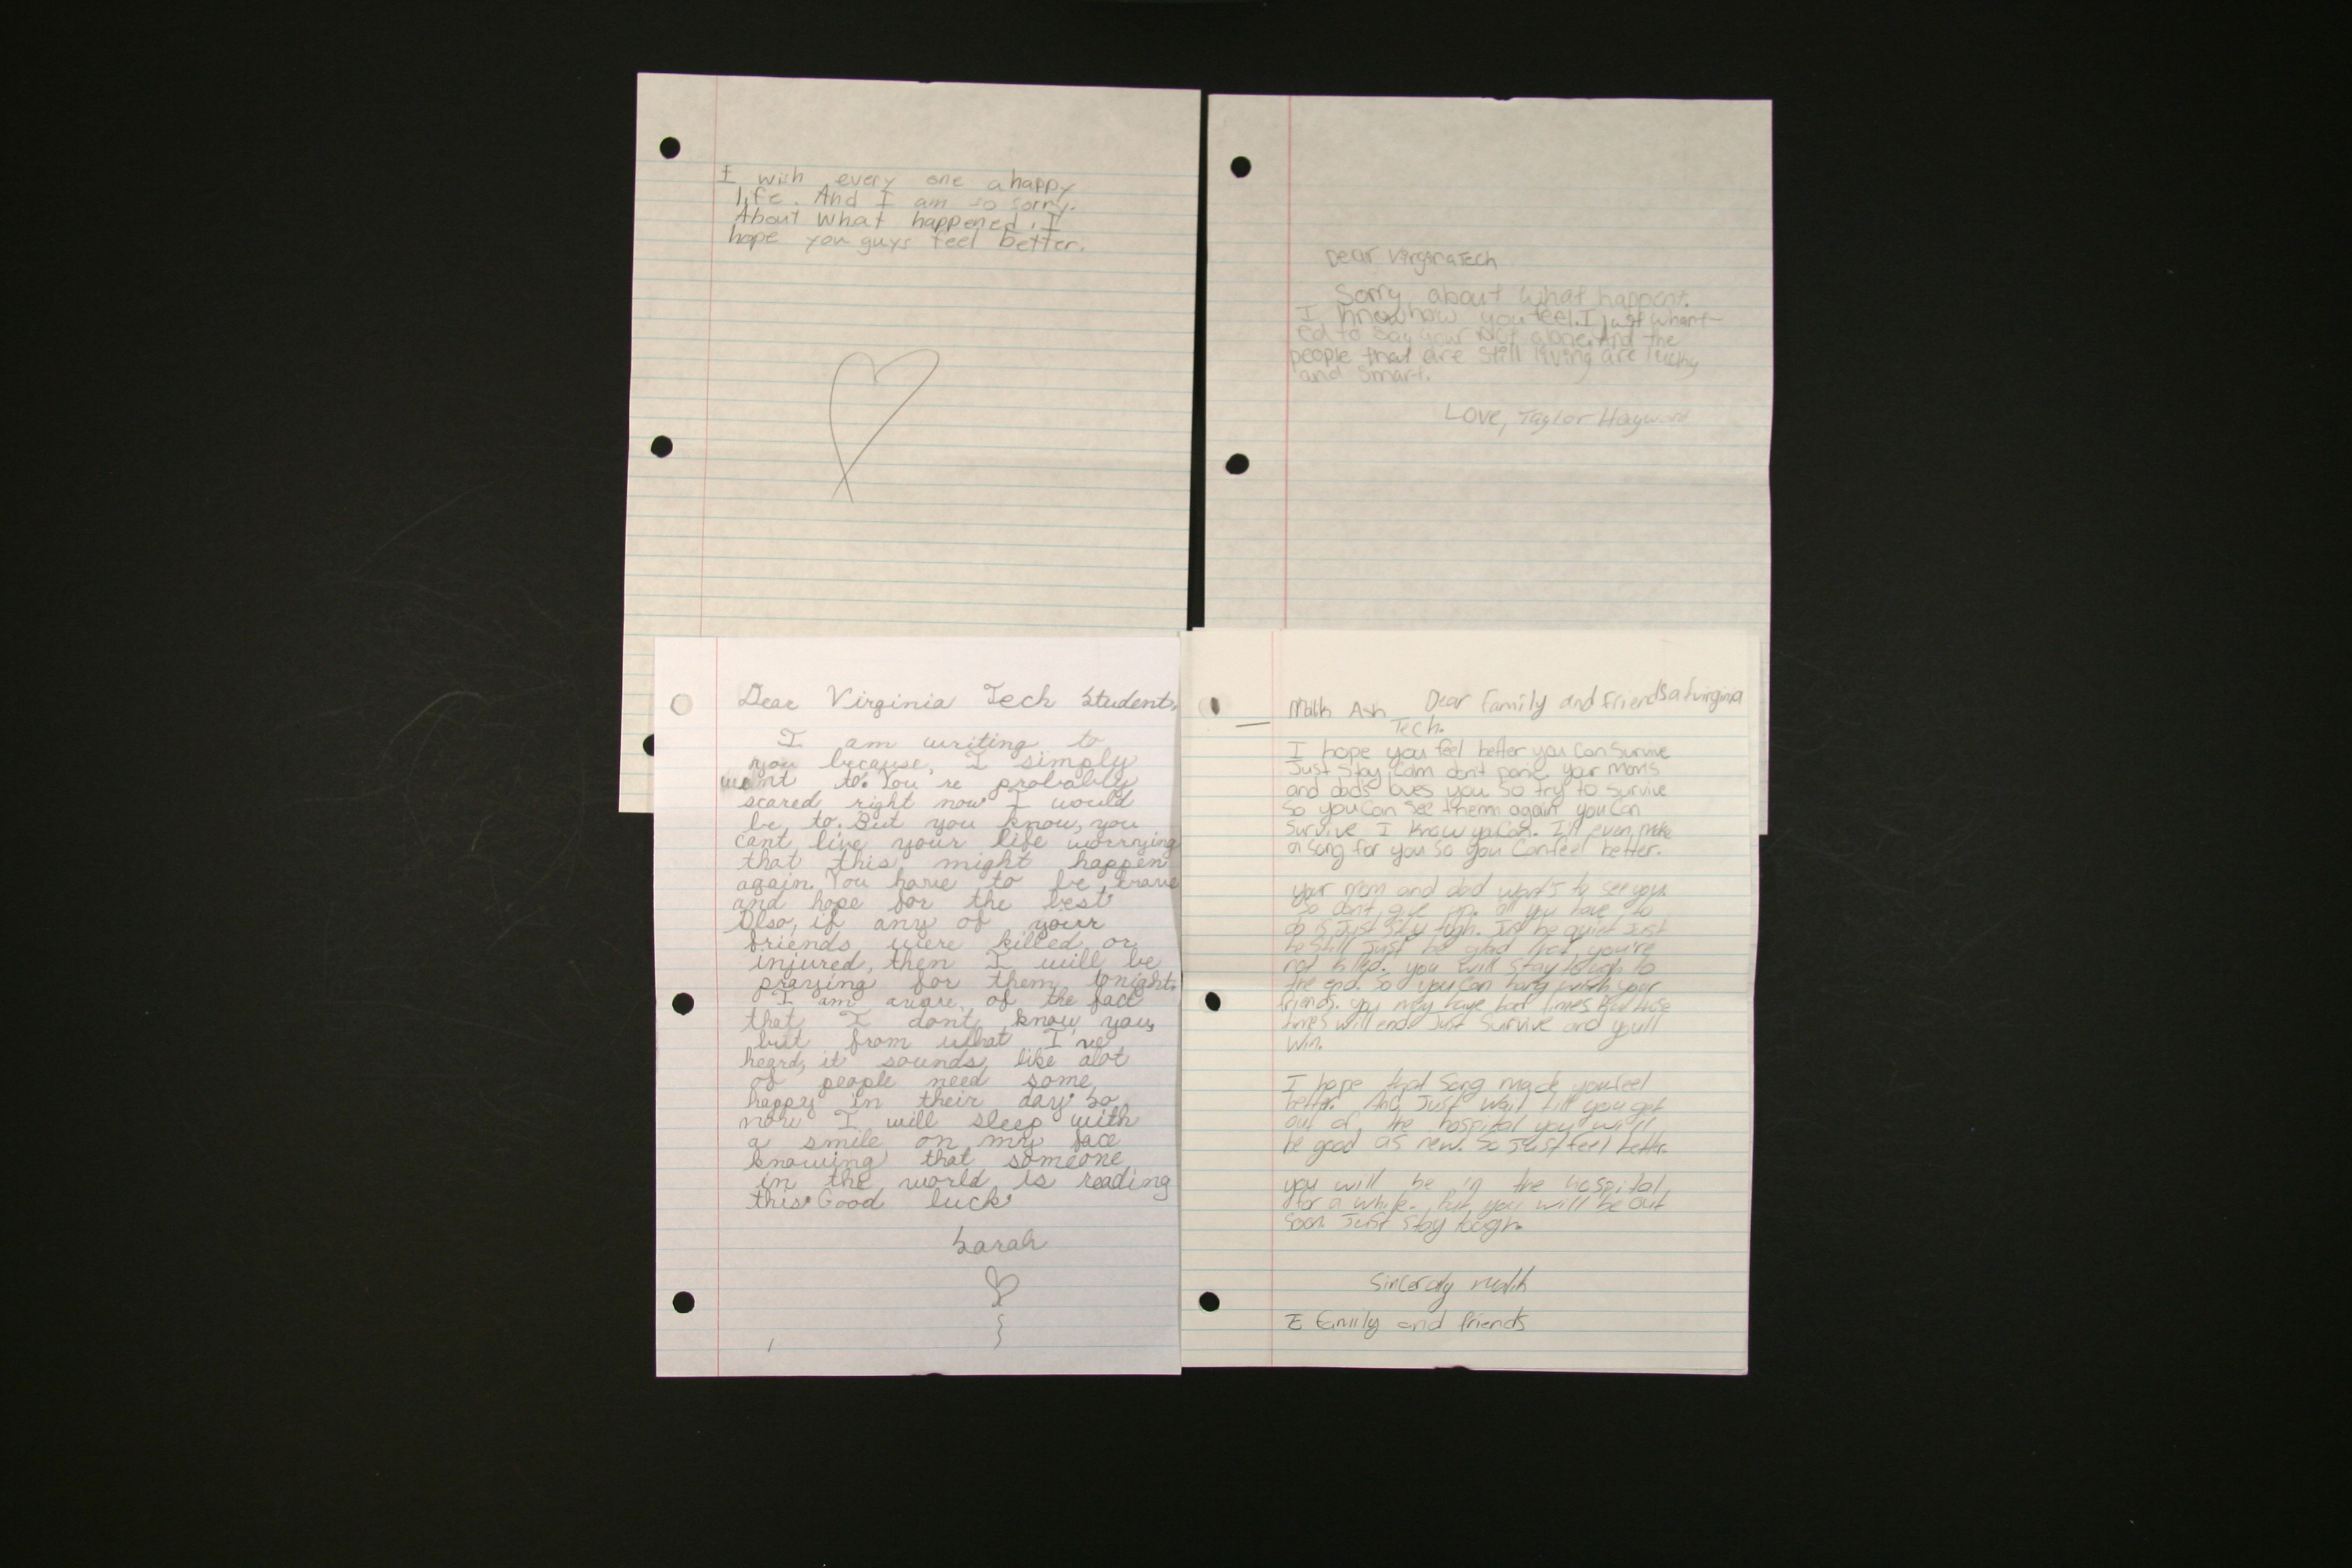 I wish every one a happy
life. And I am so sorry.
About what happened. I
hope you guys feel better.
Dear Virgina Tech
Sorry about what happent.
I know how you feel. I just whant-
ed to say your Not alone. And the
people that are still living are lucky
and smart.
Love, Taylor Hayward
Dear Virginia Tech Student,
I am writing to
you because, I simply
want to. You're probably
scared right now. I would
be to. But you know, you
cant live your life worrying
that this might happen
again. You have to be brave
and hope for the best.
Also, if any of your
friends were killed or
injured, then I will be
praying for them tonight.
I am aware of the fact
that I dont know you,
but from what I've
heard, it sounds like alot
of people need some
happy in their day. So
now I will sleep with
a smile on my face
knowing that someone
in the world is reading
this. Good luck.
Sarah
Malik Ash Dear family and friends at virginia
Tech.
I hope you feel better you can survive
Just stay calm don't panic. your moms
and dads loves you so try to survive
so you can see them again you can
survive I know you can. I'll even make
a song for you so you can feel better.
your mom and dad wants to see you.
So don't give up. all you have to
do is just stay tugh. Just be quiet Just
be still Just be glad that you're
not killed. you will stay tough to
the end. So you can hang with your
friends. you may have bad times but those
times will end. Just survive and you'll
win.
I hope that song made you feel
better. And Just wait till you get
out of the hospital you will
be good as new. So Just feel better.
you will be in the hospital
for a while. but you will be out
soon Just stay tough.
Sincerely Malik
family and friends